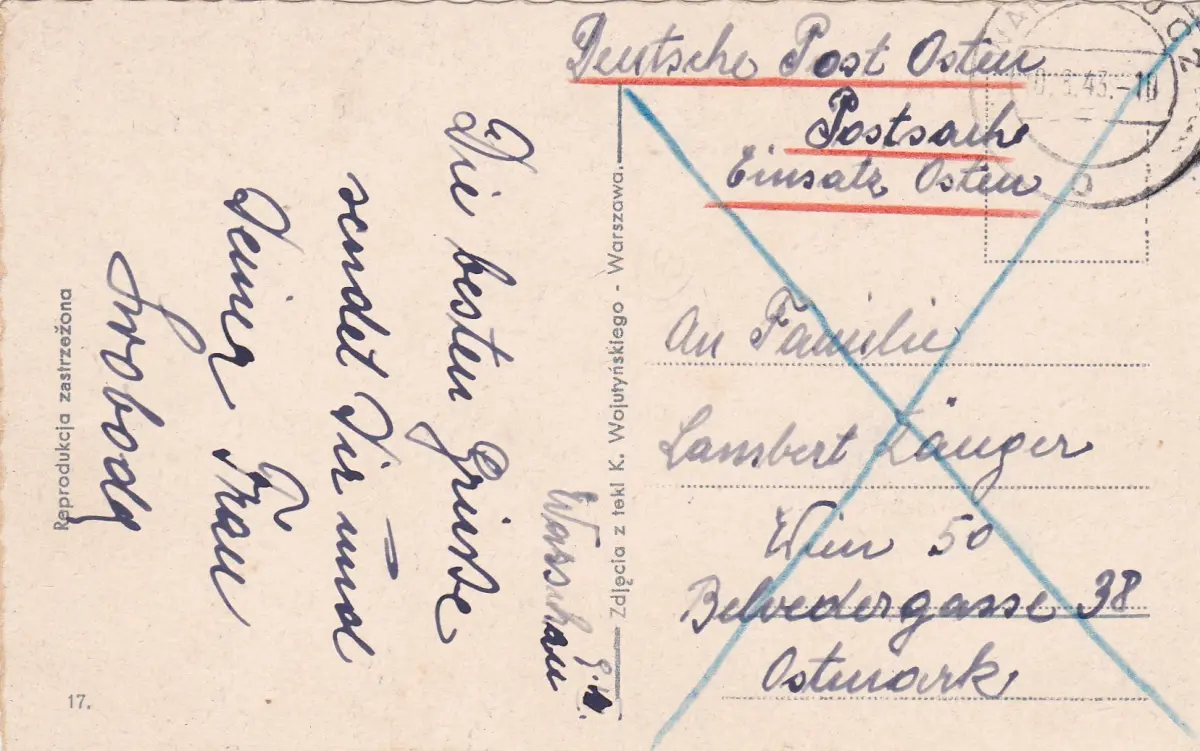 Deutsche Post Osten
Postsache
Einsatz Osten
0.3.43.-10
An Familie
Lambert Zänger
Wien 50
Belvedergasse 38
Ostmark
Warschau
Die besten Grüsse
sendet Dir und
Deiner Frau
Swoboda
Zdjęcia z teki K. Wojutyńskiego - Warszawa.
Reprodukcja zastrzeżona
17.